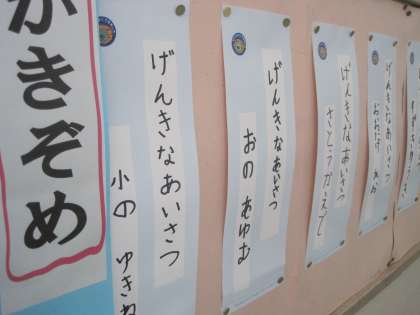 かきぞめ
げんきなあいさつ
小の ゆきね
げんきなあいさつ
おの あゆむ
げんきなあいさつ
さとうかえで
げんきなあいさつ